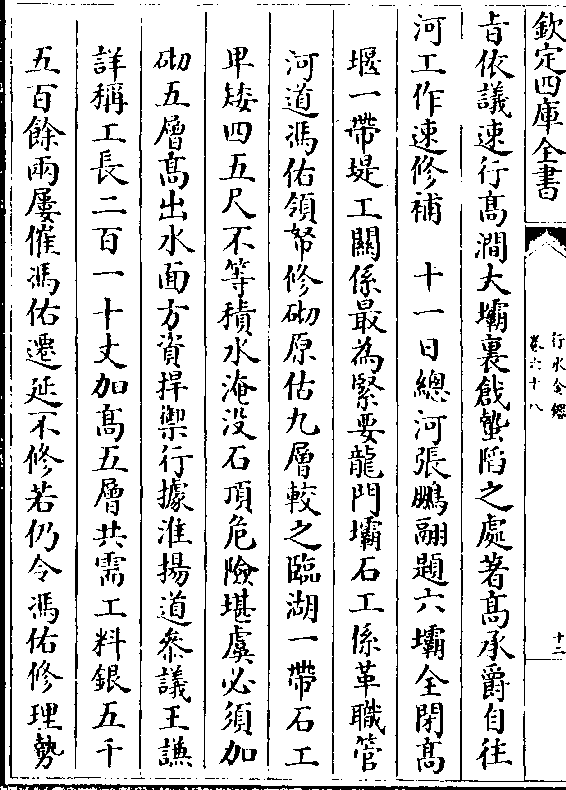 欽定四庫全書
行水金鑑
卷六十八
十二
旨依議速行高澗大壩裏戧蟄陷之處著高承爵自往
河工作速修補　十一日總河張鵬翮題六壩全閉高
堰一帶堤工關係最為緊要龍門壩石工係革職管
河道馮佑領帑修砌原估九層較之臨湖一帶石工
卑矮四五尺不等積水淹没石頂危險堪虞必須加
砌五層高出水面方資捍禦行據淮揚道叅議王謙
詳稱工長二百一十丈加高五層共需工料銀五千
五百餘兩屢催馮佑遷延不修若仍令馮佑修理勢